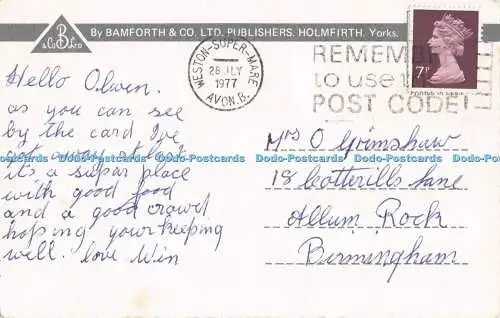 B
& Co Ltd
By BAMFORTH & CO. LTD. PUBLISHERS. HOLMFIRTH. Yorks.
WESTON-SUPER-MARE
28 JLY
1977
AVON.B.
REMEMBER
to use the
POST CODE!
7P
Hello Olwen.
as you can see
by the card I've
got away at last
it's a super place
with good food
and a good crowd
hoping your keeping
well. love Win
Mrs O Grimshaw
18 Cotterills Lane
Allum Rock
Birmingham
Dodo-Postcards Dodo-Postcards Dodo-Postcards Dodo-Postcards Dodo-Postcards Dodo-Postcards